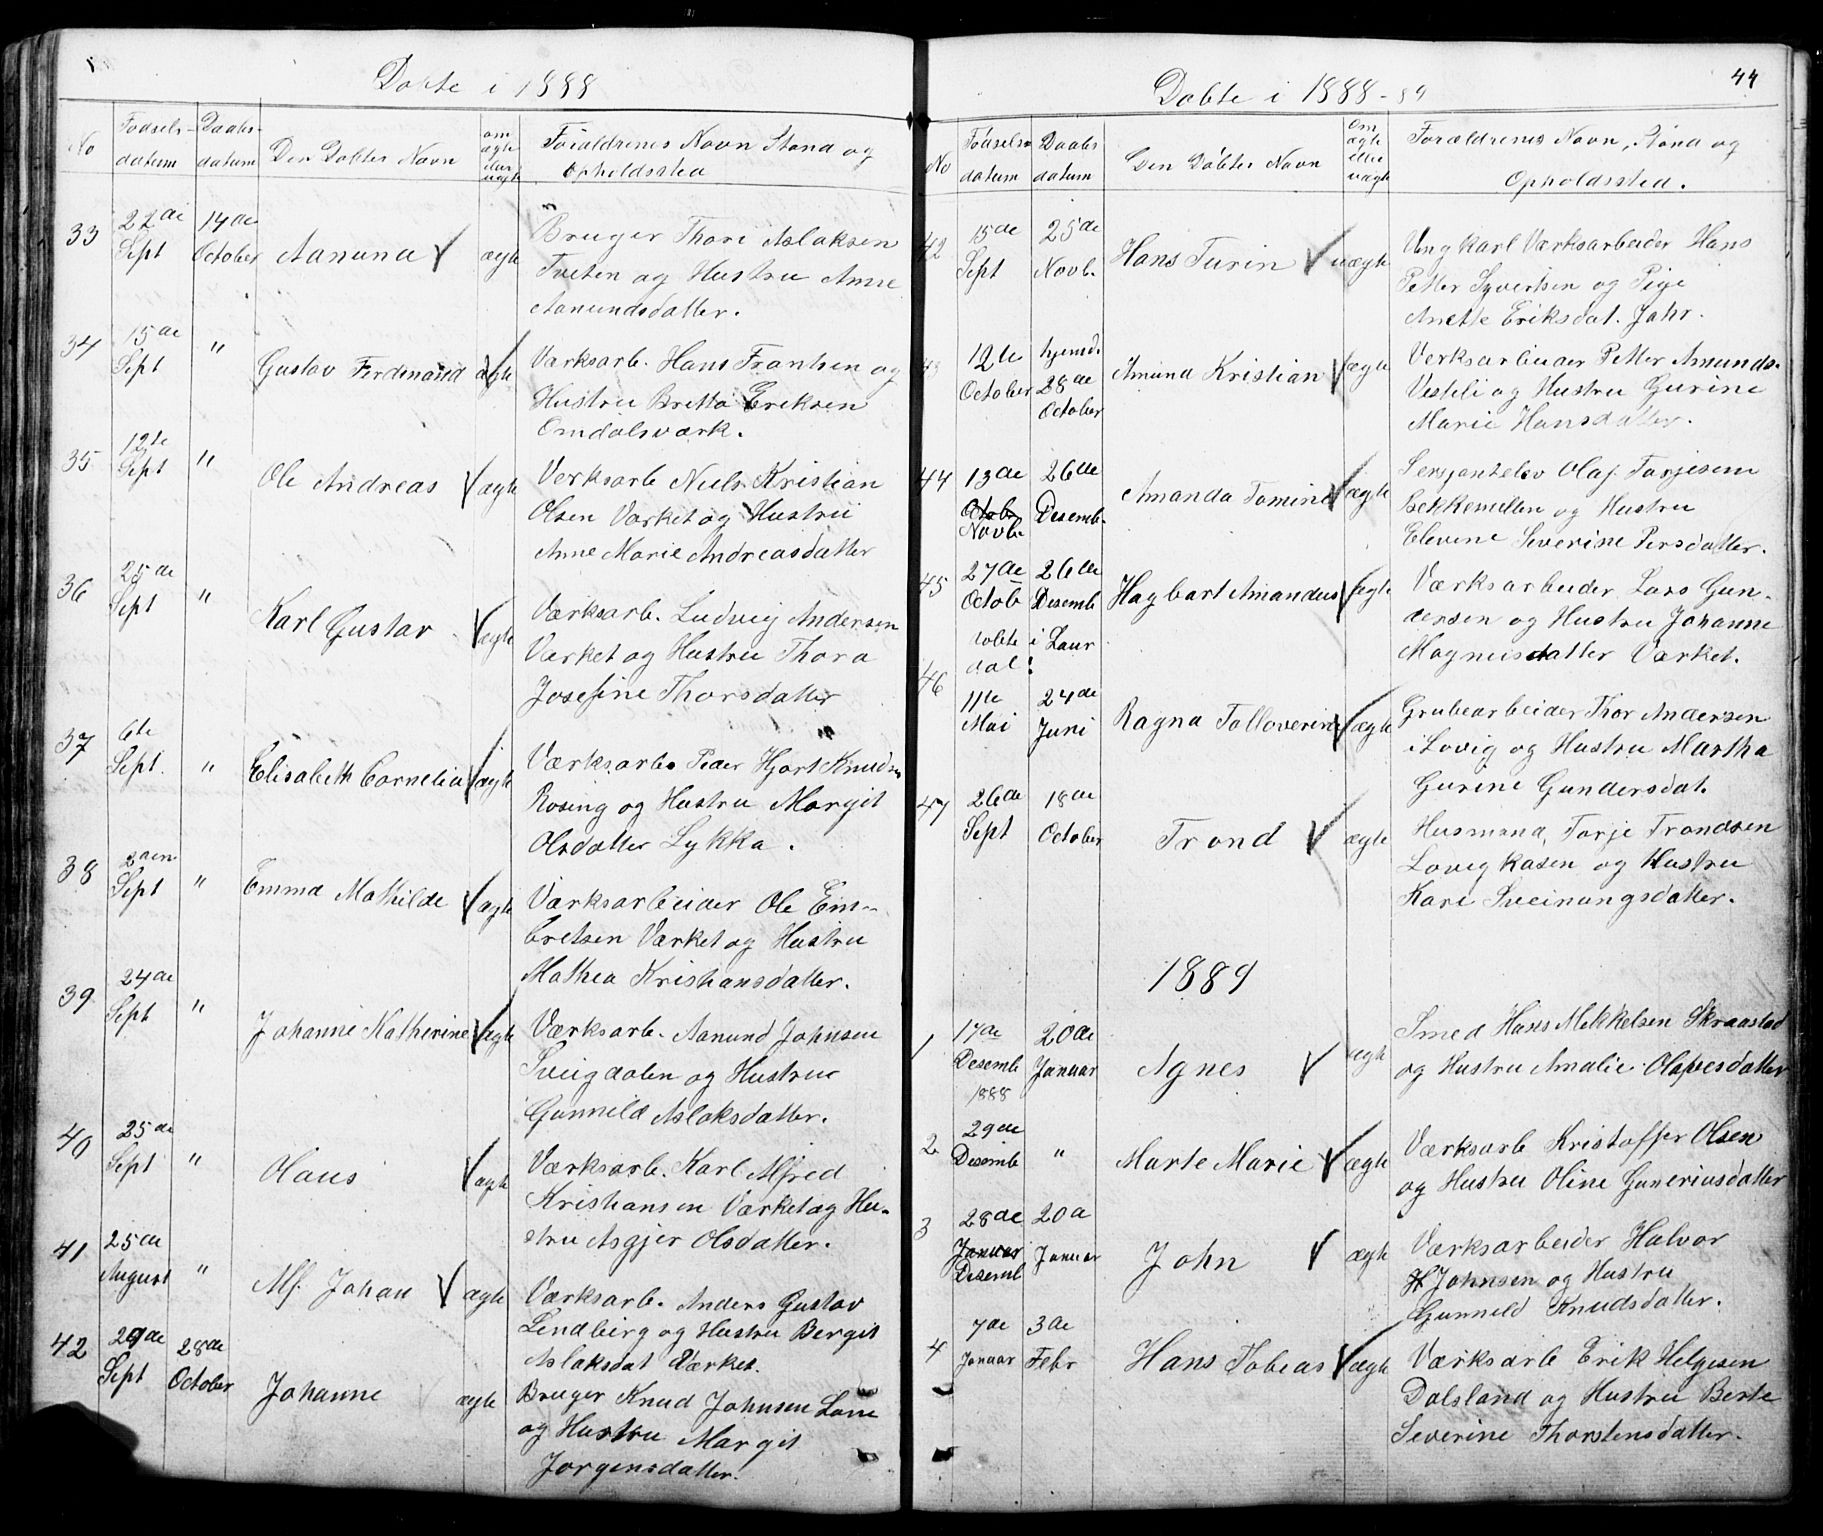 Døbte i 1888
No
Fødsels-
datum
Daabs-
datum
Den Døbtes Navn
om
ægte
eller
uægte
Forældrenes Navn Stand og
Opholdssted
33
22de
Sept
14de
October
Aanund
ægte
Bruger Thore Aslaksen
Tveten og Hustru Anne
Aanundsdatter.
34
15de
Sept
"
Gustav Ferdinand
ægte
Værksarb. Hans Frantsen og
Hustru Britta Eriksen
Omdalsværk.
35
12te
Sept
"
Ole Andreas
ægte
Verksarb Niels Kristian
Olsen Værket og Hustru
Anne Marie Andreasdatter
36
25de
Sept
"
Karl Gustav
ægte
Værksarb. Ludvig Andersen
Værket og Hustru Thora
Josefine Thorsdatter
37
6te
Sept.
"
Elisabeth Cornelia
ægte
Værksarb. Peder Hjort Knuds
Rosing og Hustru Margit
Olsdatter Lykka.
38
2den
Sept
"
Emma Mathilde
ægte
Værksarbeider Ole Em-
bretsen Værket og Hustru
Mathea Kristiansdatter.
39
24de
Sept
"
Johanne Katherine
ægte
Værksarb. Aanund Johnsen
Sveigdalen og Hustru
Gunnild Aslaksdatter.
40
25de
Sept
"
Olaus
ægte
Værksarb. Karl Alfred
Kristiansen Værket og Hu-
stru Asgjer Olsdatter.
41
25de
August
"
Alf Johan
ægte
Værksarb. Anders Gustav
Lindberg og Hustru Bergit
Aslaksdat Værket.
42
29de
Sept
28de
October
Johanne
ægte
Bruger Knud Johnsen Lone
og Hustru Margit
Jørgensdatter.
Døbte i 1888-89
44
No
Fødsels
datum
Daabs
datum
Den Døbtes Navn
Om
ægte
eller
uægte
Forældrenes Navn, Stand og
Opholdssted.
42
15de
Sept
25de
Novb.
Hans Turin
uægte
Ungkarl Værksarbeider Hans
Petter Syvertsen og Pige
Anette Eriksdat. Jahr.
43
12te
October
hjemd.
28de
October
Amund Kristian
ægte
Verksarbeider Petter Amunds.
Vestli og Hustru Gurine
Marie Hansdatter.
44
13de
Octob
Novb.
26de
Desemb.
Amanda Tomine
ægte
Sersjantelev Olaf Torjesen
Bekkemellen og Hustru
Elevine Severine Persdatter.
45
27de
Octob
26de
Desemb
Hagbart Amandus
ægte
Værksarbeider Lars Gun-
dersen og Hustru Johanne
Magnusdatter Værket.
døbte i Laur
dal:
46
11te
Mai
24de
Juni
Ragna Tolloverine
ægte
Grubearbeider Thor Andersen
i Lovig og Hustru Martha
Gurine Gundersdat.
47
26de
Sept
18de
October
Trond
ægte
Husmand, Torje Trondsen
Lovigkasen og Hustru
Kari Sveinungsdatter.
1889
1
17de
Desemb
1888
20de
Januar
Agnes
ægte
Smed Hans Mekkelsen Skraastad
og Hustru Amalie Olavesdatter
2
29de
Desemb
"
Marte Marie
ægte
Værksarb Kristoffer Olsen
og Hustru Oline Guneriusdatter
3
28de
Januar
Desemb
20de
Januar
John
ægte
Værksarbeider Halvor
Johnsen og Hustru
Gunnild Knudsdatter.
4
7de
Januar
3de
Febr
Hans Tobeas
ægte
Værksarb Erik Helgesen
Dalsland og Hustru Berte
Severine Thorstensdatter.